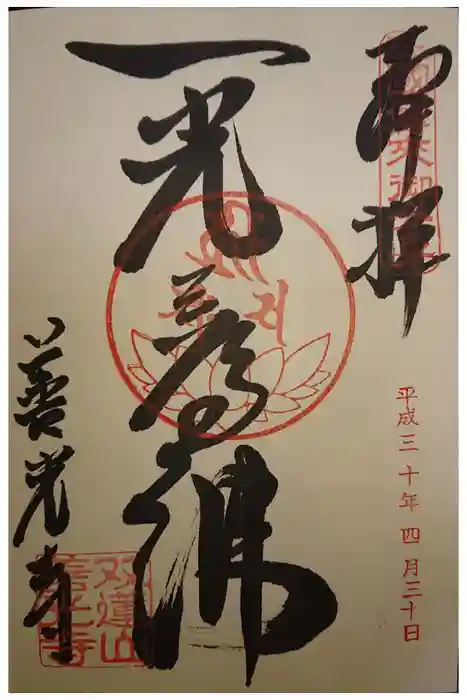 奉拝
平成三十年四月三十日
一光三尊佛
善光寺
双蓮山
善光寺